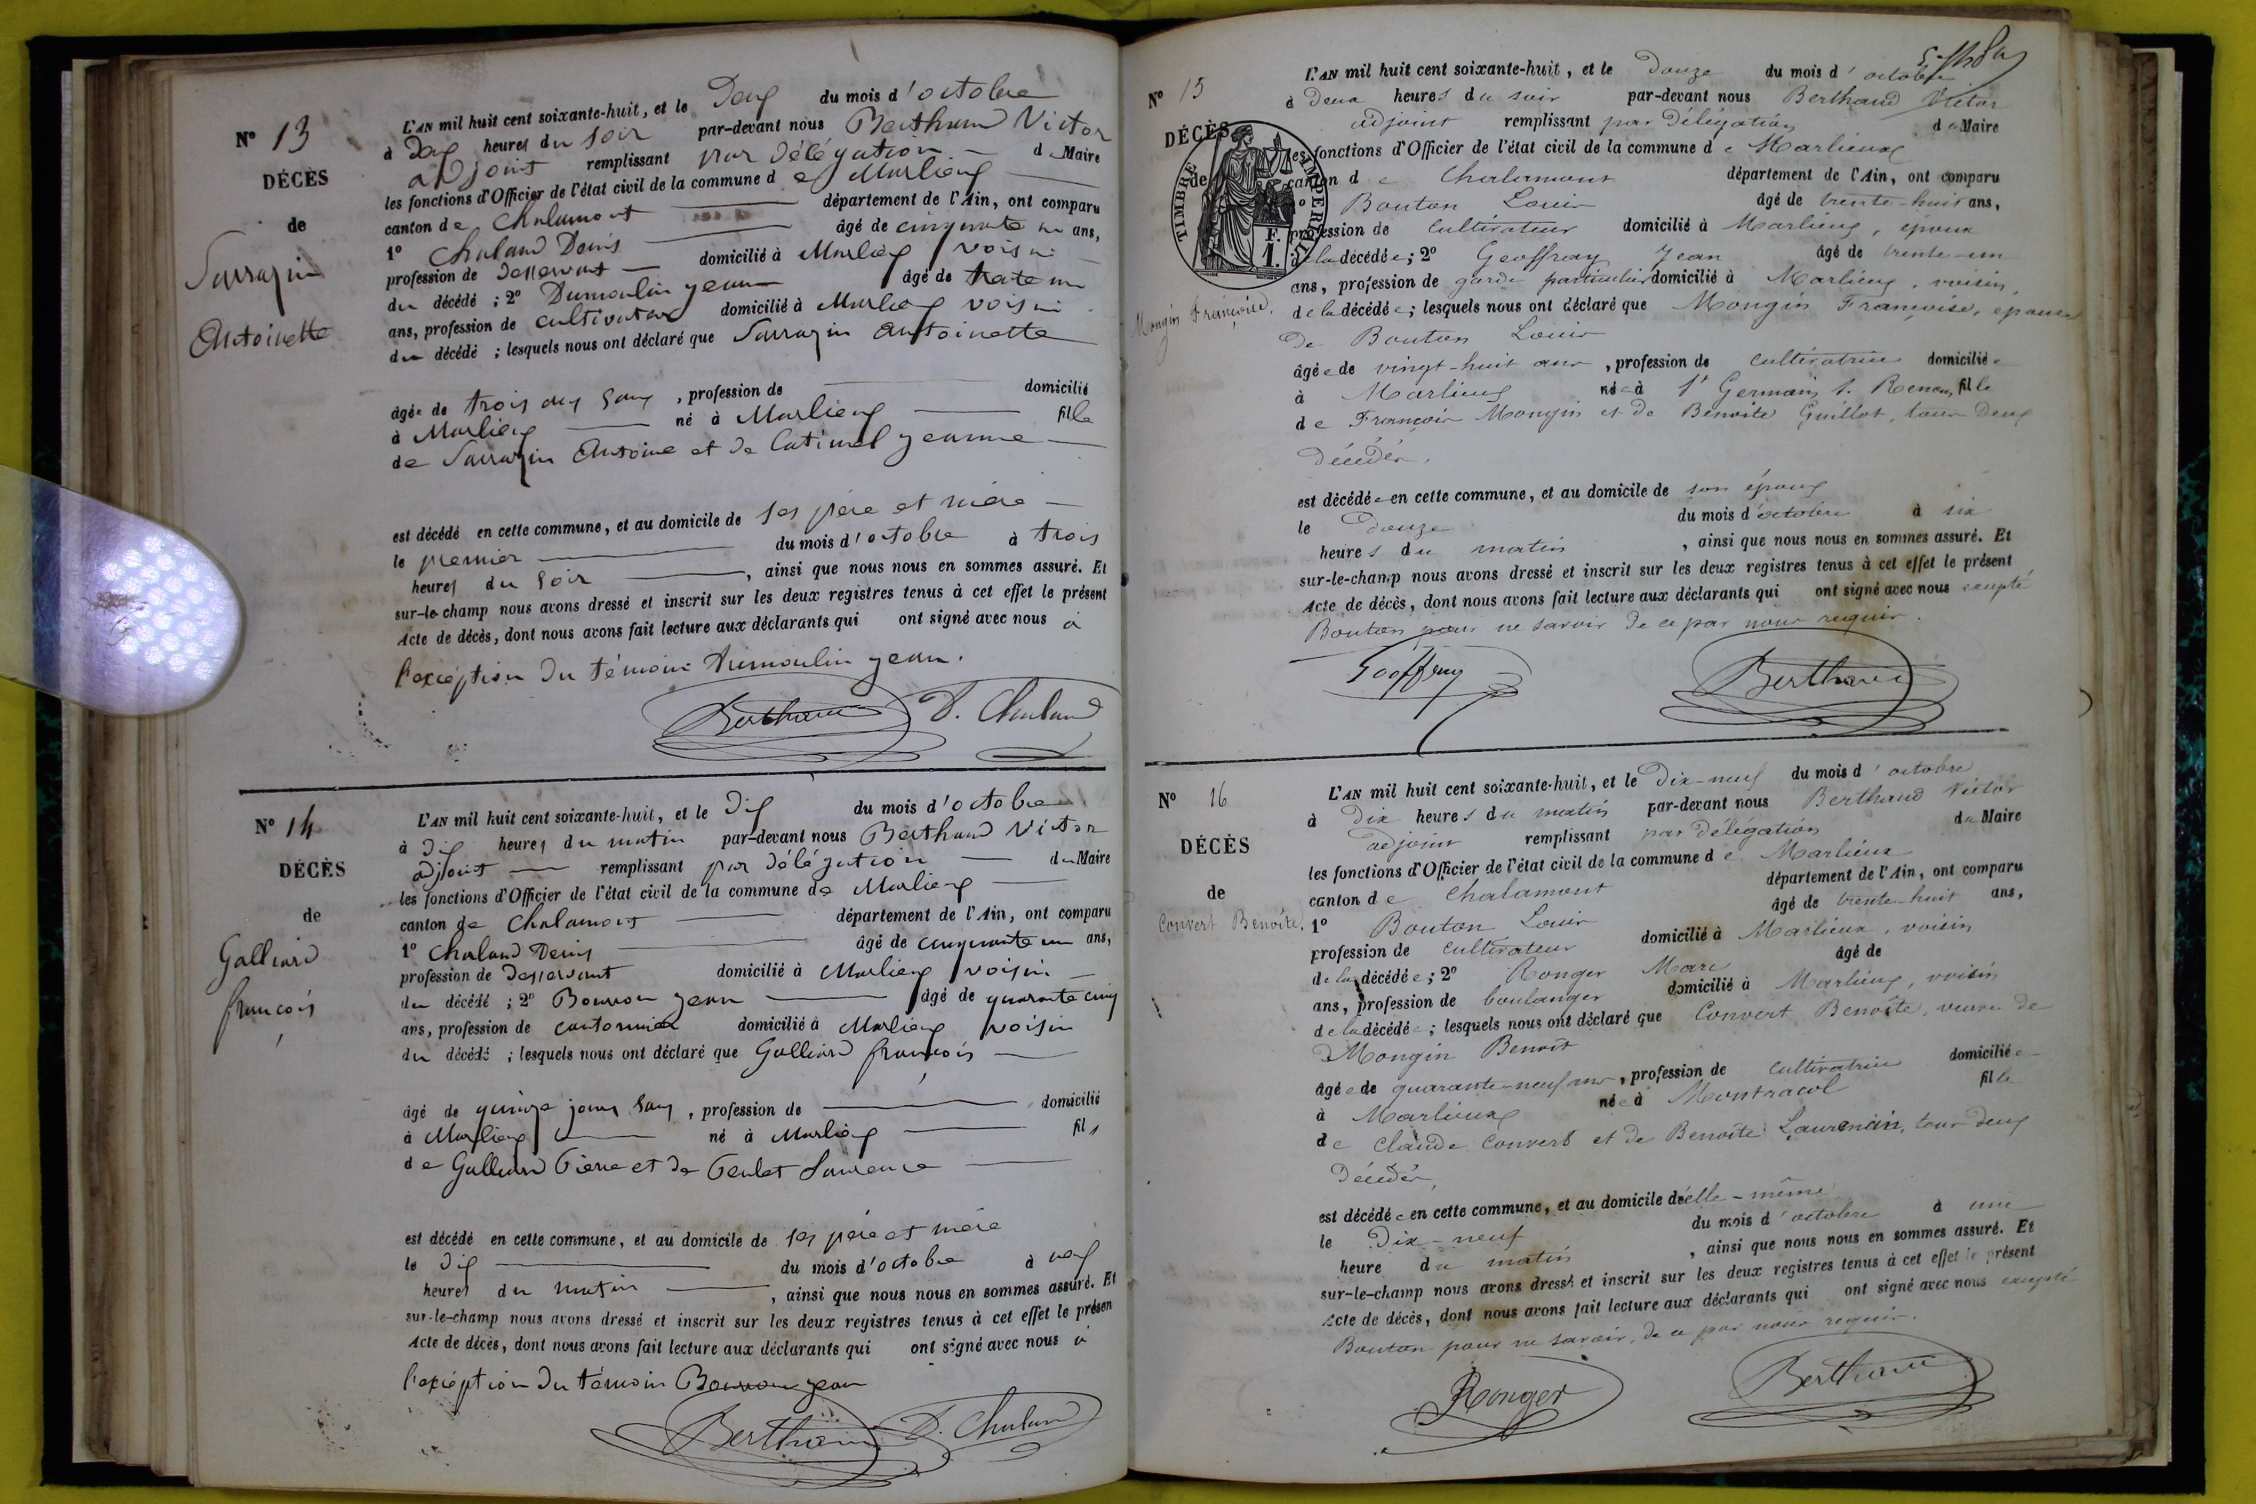 N° 13
DÉCÈS
de
Sarrazin
Antoinette
L'AN mil huit cent soixante-huit, et le Deux du mois d'octobre
à Deux heures du soir par-devant nous Berthaud Victor
adjoint remplissant par délégation du Maire
les fonctions d'Officier de l'état civil de la commune de Marlieux
canton de Chalamont département de l'Ain, ont comparu
1° Chaland Denis âgé de cinquante un ans,
profession de desservant domicilié à Marlieux voisin
du décédé ; 2° Dumoulin Jean âgé de trente un
ans, profession de cultivateur domicilié à Marlieux voisin
du décédé ; lesquels nous ont déclaré que Sarrazin Antoinette
âgée de trois , profession de domicilié
à Marlieux né à Marlieux fille
de Sarrazin Antoine et de Catimel Jeanne
est décédé en cette commune, et au domicile de ses père et mère
le premier du mois d'octobre à trois
heures du soir , ainsi que nous nous en sommes assuré. Et
sur-le-champ nous avons dressé et inscrit sur les deux registres tenus à cet effet le présent
Acte de décès, dont nous avons fait lecture aux déclarants qui ont signé avec nous à
l'exception du témoin Dumoulin Jean.
Berthaud D. Chaland
N° 14
DÉCÈS
de
Galliard
françois
L'AN mil huit cent soixante-huit, et le Dix du mois d'octobre
à Dix heures du matin par-devant nous Berthaud Victor
adjoint remplissant par délégation du Maire
les fonctions d'Officier de l'état civil de la commune de Marlieux
canton de Chalamont département de l'Ain, ont comparu
1° Chaland Denis âgé de cinquante un ans,
profession de Desservant domicilié à Marlieux voisin
du décédé ; 2° Bouvon Jean âgé de quarante cinq
ans, profession de cantonnier domicilié à Marlieux voisin
du décédé ; lesquels nous ont déclaré que Galliard françois
âgé de quinze jours , profession de domicilié
à Marlieux né à Marlieux fils
de Galliard Pierre et de Laurence
est décédé en cette commune, et au domicile de ses père et mère
le Dix du mois d'octobre à neuf
heures du matin , ainsi que nous nous en sommes assuré. Et
sur-le-champ nous avons dressé et inscrit sur les deux registres tenus à cet effet le présen
Acte de décès, dont nous avons fait lecture aux déclarants qui ont signé avec nous à
l'exception du témoin Bouvon Jean
Berthaud D. Chaland
N° 15
DÉCÈS
de
TIMBRE IMPÉRIAL
F.
1.
Mongin Françoise.
L'AN mil huit cent soixante-huit, et le Douze du mois d'octobre
à Deux heures du soir par-devant nous Berthaud Victor
adjoint remplissant par délégation du Maire
les fonctions d'Officier de l'état civil de la commune de Marlieux
canton de Chalamont département de l'Ain, ont comparu
1° Bouton Louis âgé de trente-huit ans,
profession de cultivateur domicilié à Marlieux, époux
de la décédée ; 2° Geoffray Jean âgé de trente-un
ans, profession de garde particulier domicilié à Marlieux, voisin
de la décédée ; lesquels nous ont déclaré que Mongin Françoise, épouse
De Bouton Louis
âgée de vingt-huit ans , profession de cultivatrice domiciliée
à Marlieux née à St Germain s. Renon, fille
de François Mongin et de Benoîte Guillot, tous Deux
Décédés.
est décédée en cette commune, et au domicile de son époux
le Douze du mois d'octobre à six
heures du matin , ainsi que nous nous en sommes assuré. Et
sur-le-champ nous avons dressé et inscrit sur les deux registres tenus à cet effet le présent
Acte de décès, dont nous avons fait lecture aux déclarants qui ont signé avec nous excepté
Bouton pour ne savoir de ce par nous requis.
Geoffray Berthaud
N° 16
DÉCÈS
de
Convert Benoîte.
L'AN mil huit cent soixante-huit, et le Dix-neuf du mois d'octobre
à Dix heures du matin par-devant nous Berthaud Victor
adjoint remplissant par délégation du Maire
les fonctions d'Officier de l'état civil de la commune de Marlieux
canton de Chalamont département de l'Ain, ont comparu
1° Bouton Louis âgé de trente-huit ans,
profession de cultivateur domicilié à Marlieux, voisin
de la décédée ; 2° Ronger Marc âgé de
ans, profession de boulanger domicilié à Marlieux, voisin
de la décédée ; lesquels nous ont déclaré que Convert Benoîte, veuve de
Mongin Benoît
âgée de quarante-neuf ans, profession de cultivatrice domiciliée
à Marlieux née à Montracol fille
de Claude Convert et de Benoîte Laurencin, tous deux
Décédés,
est décédée en cette commune, et au domicile d'elle-même
le Dix-neuf du mois d'octobre à une
heure du matin , ainsi que nous nous en sommes assuré. Et
sur-le-champ nous avons dressé et inscrit sur les deux registres tenus à cet effet le présent
Acte de décès, dont nous avons fait lecture aux déclarants qui ont signé avec nous excepté
Bouton pour ne savoir, de ce par nous requis.
Ronger Berthaud